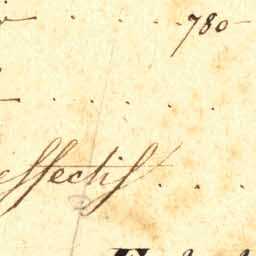 780
effectif